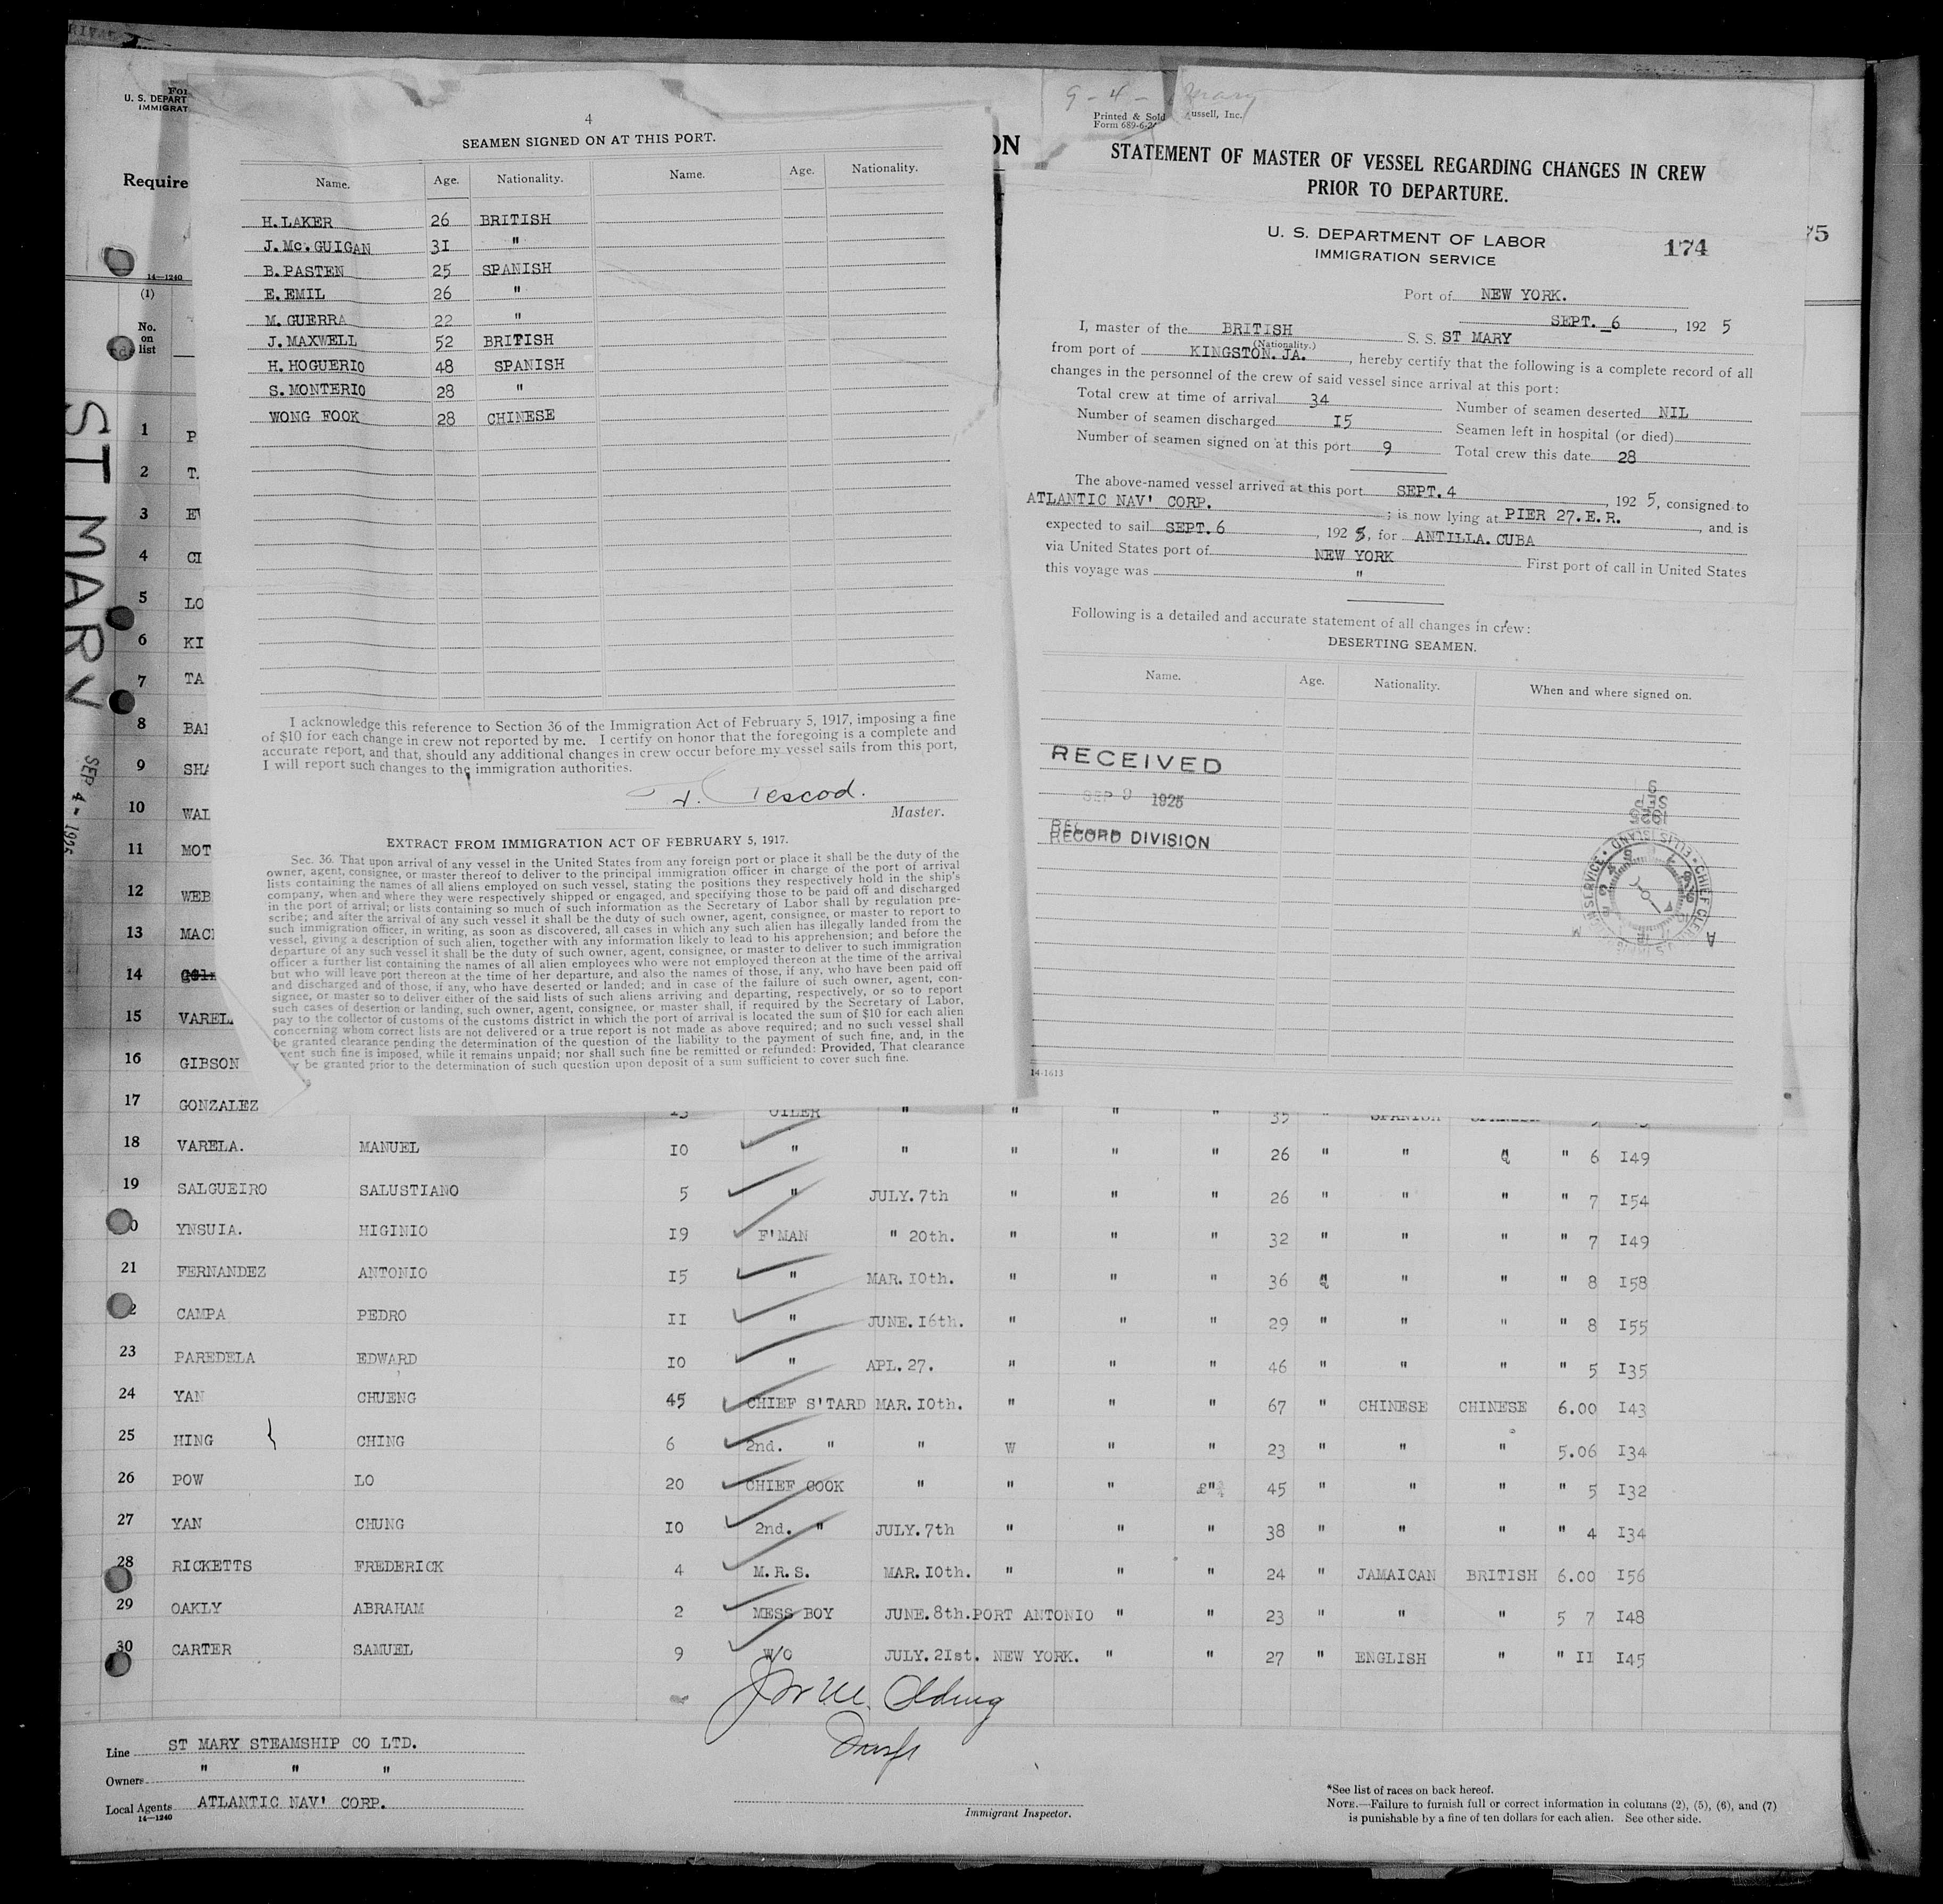 4
SEAMEN SIGNED ON AT THIS PORT.
Name. Age. Nationality. Name. Age. Nationality.
H. LAKER 26 BRITISH
J. Mc. GUIGAN 31 "
B. PASTEN 25 SPANISH
E. EMIL 26 "
M. GUERRA 22 "
J. MAXWELL 52 BRITISH
H. HOGUERIO 48 SPANISH
S. MONTERIO 28 "
WONG FOOK 28 CHINESE
I acknowledge this reference to Section 36 of the Immigration Act of February 5, 1917, imposing a fine
of $10 for each change in crew not reported by me. I certify on honor that the foregoing is a complete and
accurate report, and that, should any additional changes in crew occur before my vessel sails from this port,
I will report such changes to the immigration authorities.
Master.
EXTRACT FROM IMMIGRATION ACT OF FEBRUARY 5, 1917.
Sec. 36. That upon arrival of any vessel in the United States from any foreign port or place it shall be the duty of the
owner, agent, consignee, or master thereof to deliver to the principal immigration officer in charge of the port of arrival
lists containing the names of all aliens employed on such vessel, stating the positions they respectively hold in the ship's
company, when and where they were respectively shipped or engaged, and specifying those to be paid off and discharged
in the port of arrival; or lists containing so much of such information as the Secretary of Labor shall by regulation pre-
scribe; and after the arrival of any such vessel it shall be the duty of such owner, agent, consignee, or master to report to
such immigration officer, in writing, as soon as discovered, all cases in which any such alien has illegally landed from the
vessel, giving a description of such alien, together with any information likely to lead to his apprehension; and before the
departure of any such vessel it shall be the duty of such owner, agent, consignee, or master to deliver to such immigration
officer a further list containing the names of all alien employees who were not employed thereon at the time of the arrival
but who will leave port thereon at the time of her departure, and also the names of those, if any, who have been paid off
and discharged and of those, if any, who have deserted or landed; and in case of the failure of such owner, agent, con-
signee, or master so to deliver either of the said lists of such aliens arriving and departing, respectively, or so to report
such cases of desertion or landing, such owner, agent, consignee, or master shall, if required by the Secretary of Labor,
pay to the collector of customs of the customs district in which the port of arrival is located the sum of $10 for each alien
concerning whom correct lists are not delivered or a true report is not made as above required; and no such vessel shall
be granted clearance pending the determination of the question of the liability to the payment of such fine, and, in the
such fine is imposed, while it remains unpaid; nor shall such fine be remitted or refunded: Provided, That clearance
be granted prior to the determination of such question upon deposit of a sum sufficient to cover such fine.
9-4- Mary
Printed & Sold ussell, Inc.
Form 689-6-2
STATEMENT OF MASTER OF VESSEL REGARDING CHANGES IN CREW
PRIOR TO DEPARTURE.
U. S. DEPARTMENT OF LABOR
IMMIGRATION SERVICE
174
Port of NEW YORK.
SEPT. 6, 192 5
I, master of the BRITISH S. S. ST MARY
(Nationality.)
from port of KINGSTON. JA., hereby certify that the following is a complete record of all
changes in the personnel of the crew of said vessel since arrival at this port:
Total crew at time of arrival 34 Number of seamen deserted NIL
Number of seamen discharged I5 Seamen left in hospital (or died)
Number of seamen signed on at this port 9 Total crew this date 28
The above-named vessel arrived at this port SEPT. 4, 192 5, consigned to
ATLANTIC NAV' CORP.; is now lying at PIER 27. E. R., and is
expected to sail SEPT. 6, 192 5, for ANTILLA. CUBA
via United States port of NEW YORK First port of call in United States
this voyage was "
Following is a detailed and accurate statement of all changes in crew:
DESERTING SEAMEN.
Name. Age. Nationality. When and where signed on.
RECEIVED
SEP 9 1925
RECORD DIVISION
14-1613
U. S. DEPART
IMMIGRAT
Require
ON
75
14—1240
(1)
No.
on
list
ST MARY
SEP 4 - 1925
1 P
2 T.
3
4
5 LO
6 KI
7 TA
8 BA
9 SHA
10 WAL
11 MOT
12 WEB
13 MAC
14
15 VAREL
16 GIBSON
17 GONZALEZ OILER " " " " 35 " SPANISH
18 VARELA. MANUEL I0 " " " " " 26 " " " 6 I49
19 SALGUEIRO SALUSTIANO 5 " JULY. 7th " " " 26 " " " " 7 I54
20 YNSUIA. HIGINIO I9 F'MAN " 20th. " " " 32 " " " " 7 I49
21 FERNANDEZ ANTONIO I5 " MAR. I0th. " " " 36 " " " 8 I58
22 CAMPA PEDRO II " JUNE. I6th. " " " 29 " " " " 8 I55
23 PAREDELA EDWARD I0 " APL. 27. " " " 46 " " " " 5 I35
24 YAN CHUENG 45 CHIEF S'TARD MAR. I0th. " " " 67 " CHINESE CHINESE 6.00 I43
25 HING CHING 6 2nd. " " W " " 23 " " " 5.06 I34
26 POW LO 20 CHIEF COOK " " " " 45 " " " " 5 I32
27 YAN CHUNG I0 2nd. " JULY. 7th " " " 38 " " " " 4 I34
28 RICKETTS FREDERICK 4 M.R.S. MAR. I0th. " " " 24 " JAMAICAN BRITISH 6.00 I56
29 OAKLY ABRAHAM 2 MESS BOY JUNE. 8th. PORT ANTONIO " " 23 " " " 5 7 I48
30 CARTER SAMUEL 9 W/O JULY. 2Ist. NEW YORK. " " 27 " ENGLISH " " II I45
Line ST MARY STEAMSHIP CO LTD.
Owners " " "
Local Agents ATLANTIC NAV' CORP.
14—1240
Immigrant Inspector.
*See list of races on back hereof.
NOTE.—Failure to furnish full or correct information in columns (2), (5), (6), and (7)
is punishable by a fine of ten dollars for each alien. See other side.